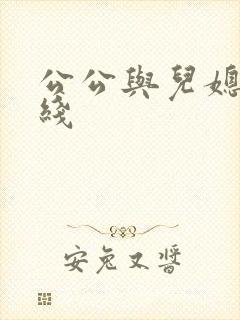 公公與兒媳
綫
安兔又醬